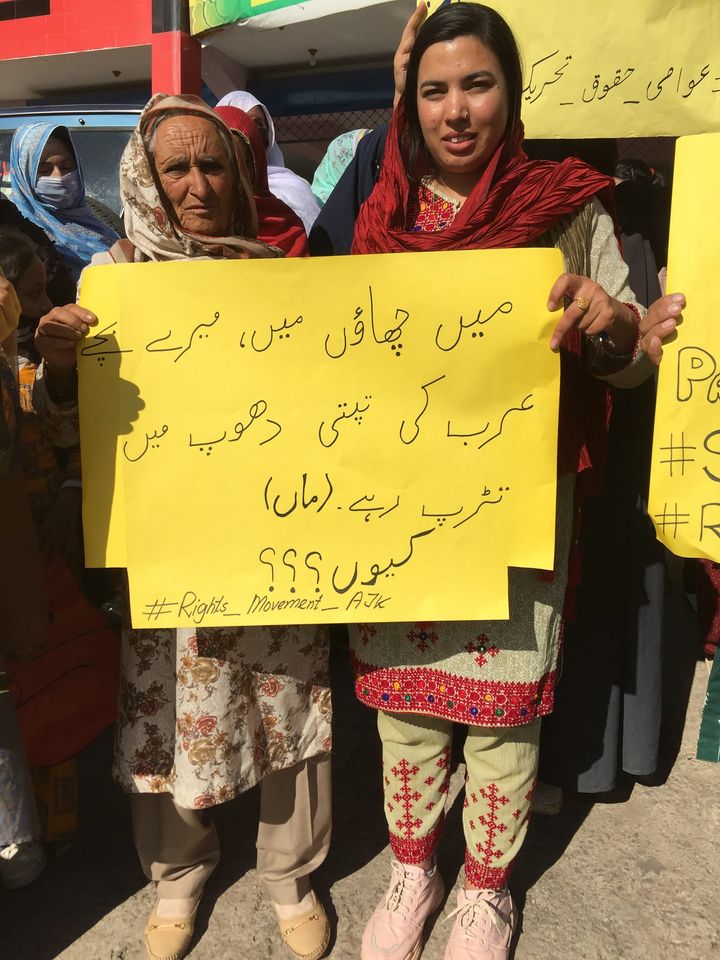 عوامی_حقوق_تحریک
میں چھاؤں میں، میرے بچے
عرب کی تپتی دھوپ میں
تڑپ رہے۔ (ماں)
کیوں؟؟؟
#Rights_Movement_AJK
#S
#R